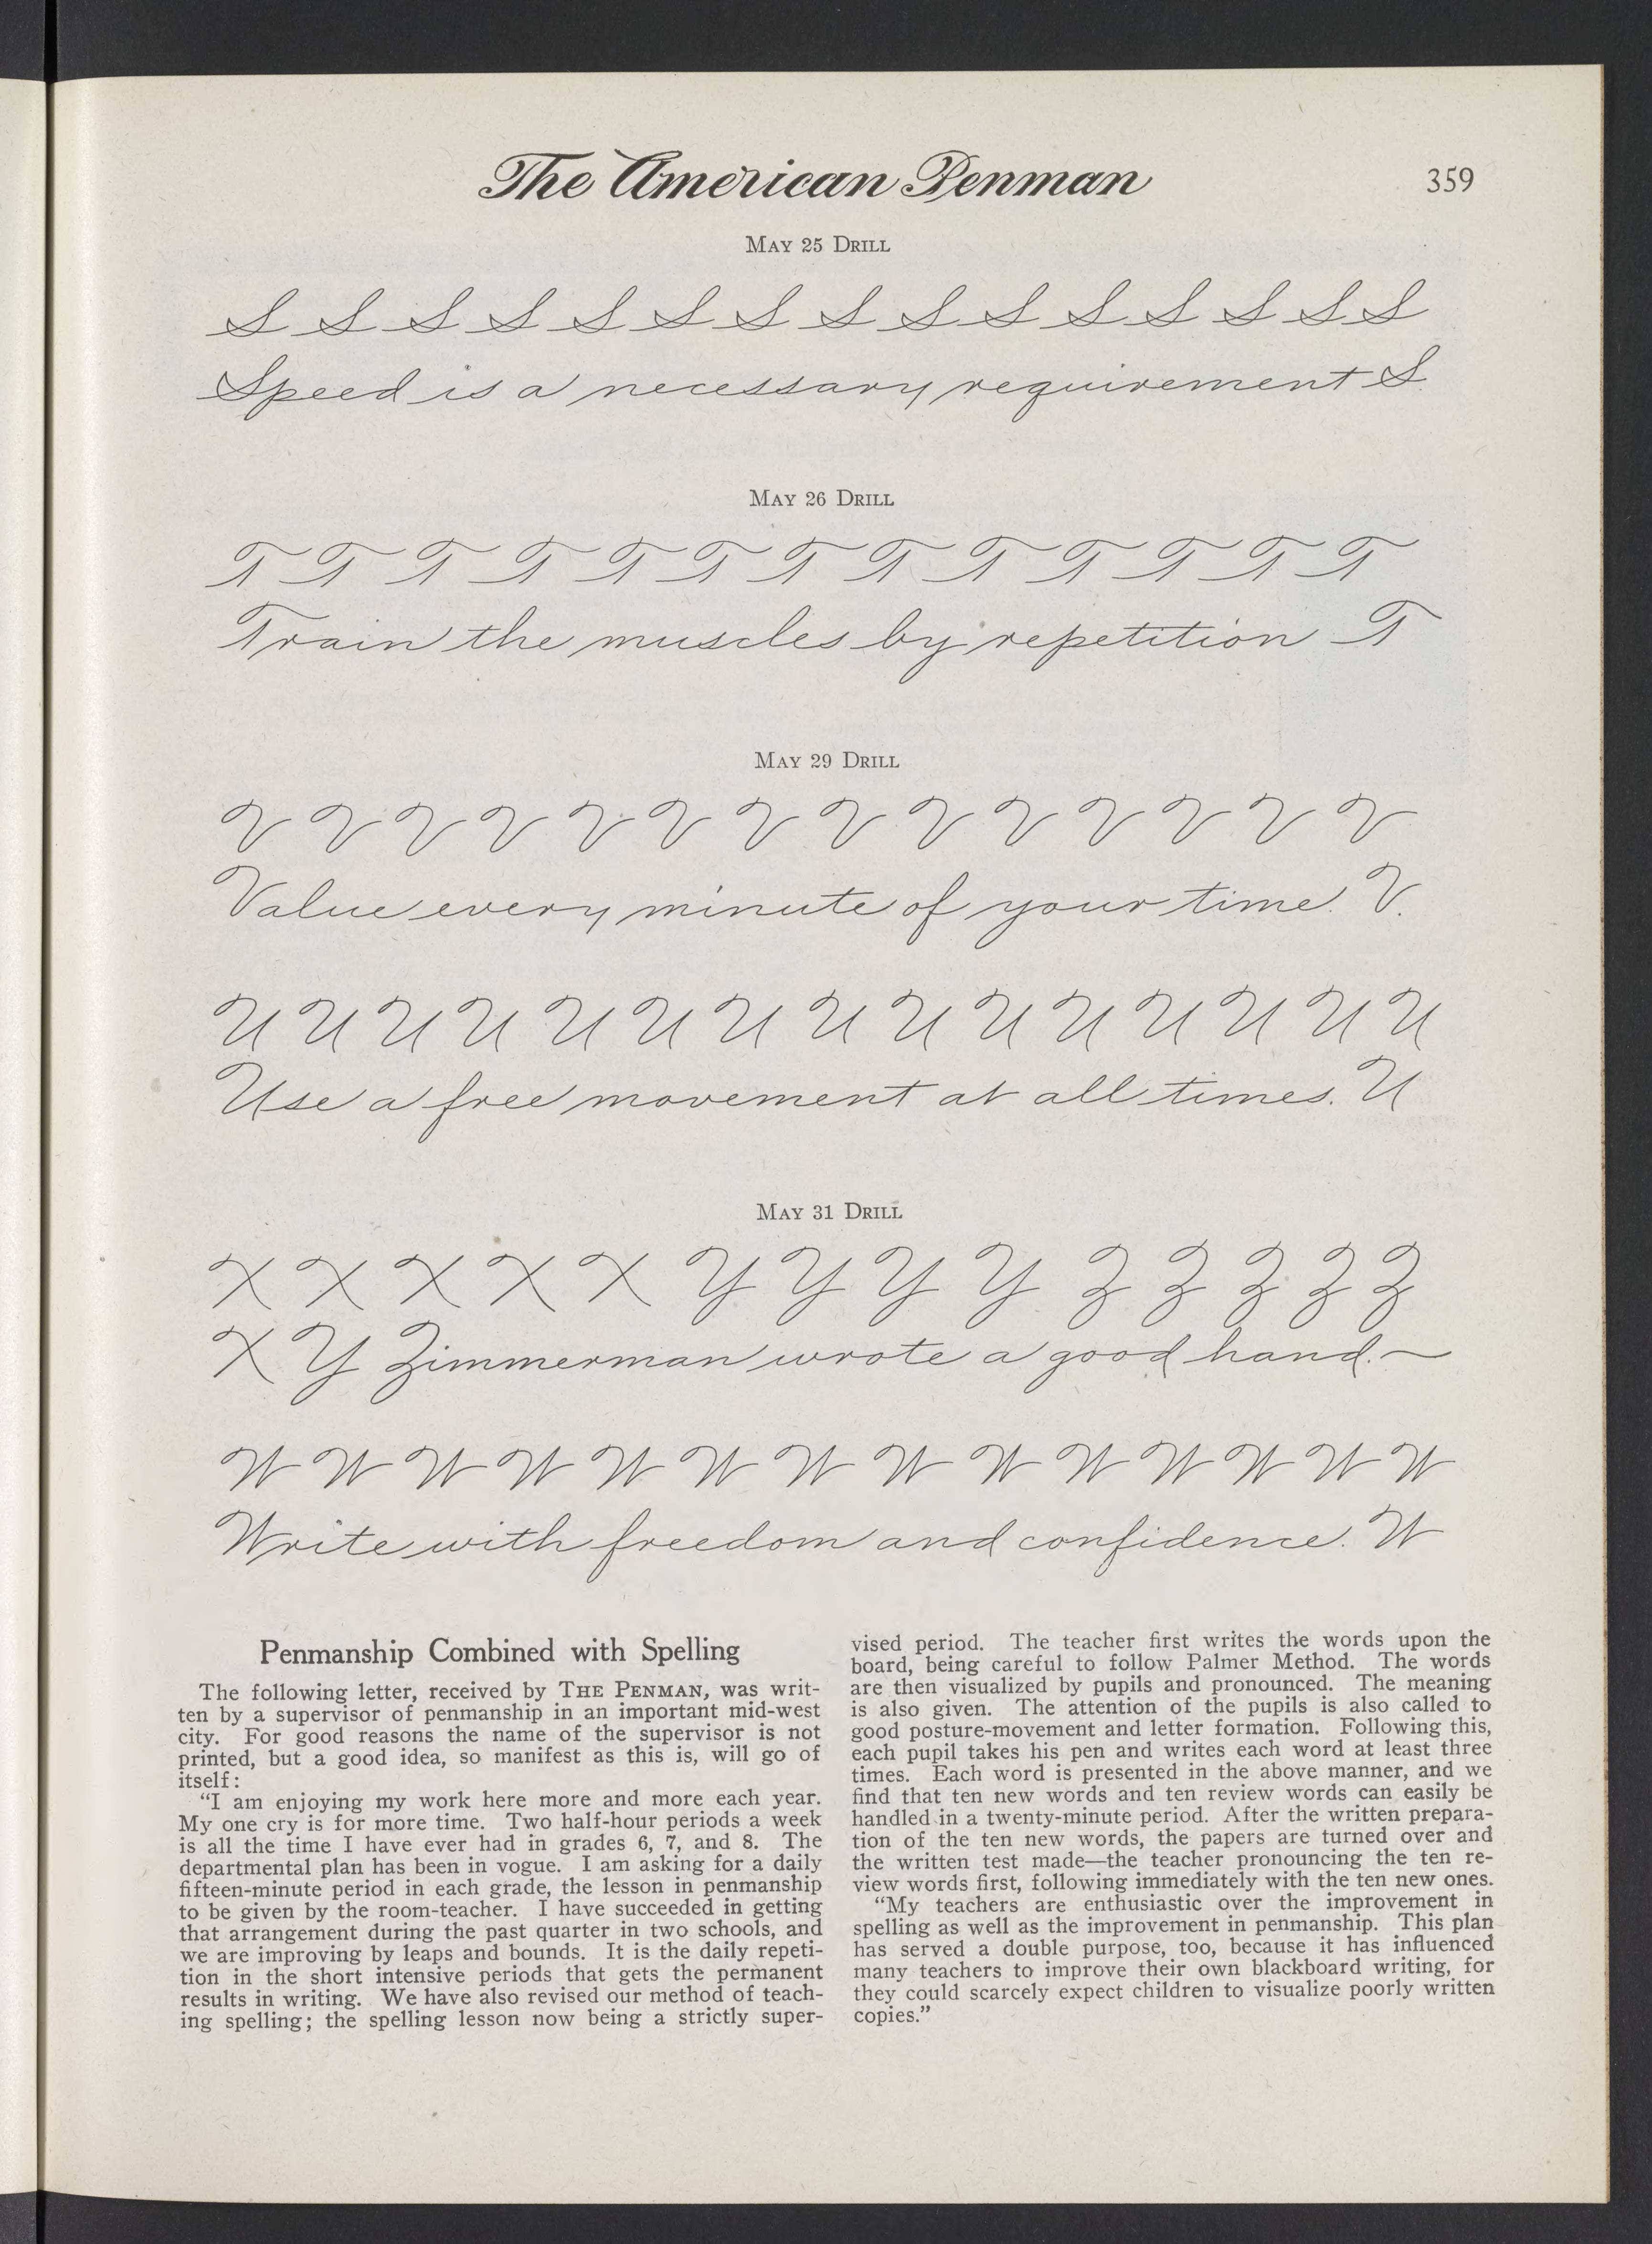 The American Penman
359
MAY 25 DRILL
S S S S S S S S S S S S S S S
Speed is a necessary requirement S.
MAY 26 DRILL
T T T T T T T T T T T T T
Train the muscles by repetition T
MAY 29 DRILL
V V V V V V V V V V V V V V
Value every minute of your time. V.
U U U U U U U U U U U U U U U
Use a free movement at all times. U
MAY 31 DRILL
X X X X X Y Y Y Y Z Z Z Z Z
X Y Zimmerman wrote a good hand. ~
W W W W W W W W W W W W W W
Write with freedom and confidence. W
Penmanship Combined with Spelling
The following letter, received by THE PENMAN, was writ-
ten by a supervisor of penmanship in an important mid-west
city. For good reasons the name of the supervisor is not
printed, but a good idea, so manifest as this is, will go of
itself:
“I am enjoying my work here more and more each year.
My one cry is for more time. Two half-hour periods a week
is all the time I have ever had in grades 6, 7, and 8. The
departmental plan has been in vogue. I am asking for a daily
fifteen-minute period in each grade, the lesson in penmanship
to be given by the room-teacher. I have succeeded in getting
that arrangement during the past quarter in two schools, and
we are improving by leaps and bounds. It is the daily repeti-
tion in the short intensive periods that gets the permanent
results in writing. We have also revised our method of teach-
ing spelling; the spelling lesson now being a strictly super-
vised period. The teacher first writes the words upon the
board, being careful to follow Palmer Method. The words
are then visualized by pupils and pronounced. The meaning
is also given. The attention of the pupils is also called to
good posture-movement and letter formation. Following this,
each pupil takes his pen and writes each word at least three
times. Each word is presented in the above manner, and we
find that ten new words and ten review words can easily be
handled in a twenty-minute period. After the written prepara-
tion of the ten new words, the papers are turned over and
the written test made—the teacher pronouncing the ten re-
view words first, following immediately with the ten new ones.
“My teachers are enthusiastic over the improvement in
spelling as well as the improvement in penmanship. This plan
has served a double purpose, too, because it has influenced
many teachers to improve their own blackboard writing, for
they could scarcely expect children to visualize poorly written
copies.”